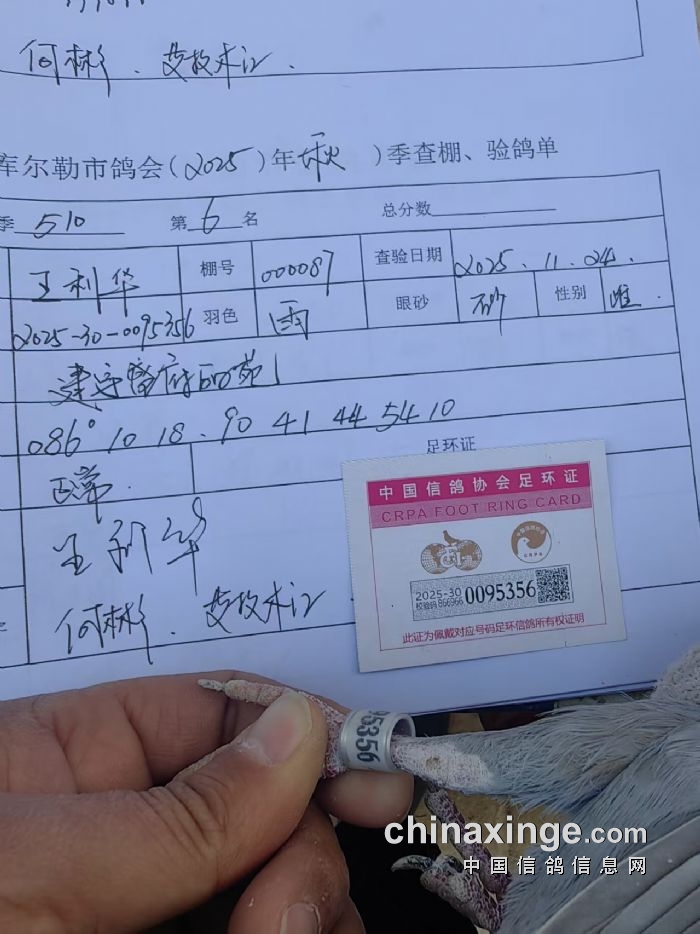 何彬、艾技术江.
库尔勒市鸽会(2025)年(秋)季查棚、验鸽单
季 510 第 6 名 总分数
王利华 棚号 000087 查验日期 2025.11.24.
2025-30-0095356 羽色 雨 眼砂 砂 性别 雌.
086°10 18.90 41 44 54 10
足环证
正常.
王利华
何彬、艾技术江
中国信鸽协会足环证
CRPA FOOT RING CARD
中国信鸽协会
CRPA
2025-30
校验码 866966
0095356
此证为佩戴对应号码足环信鸽所有权证明
95356
chinaxinge.com
中国信鸽信息网